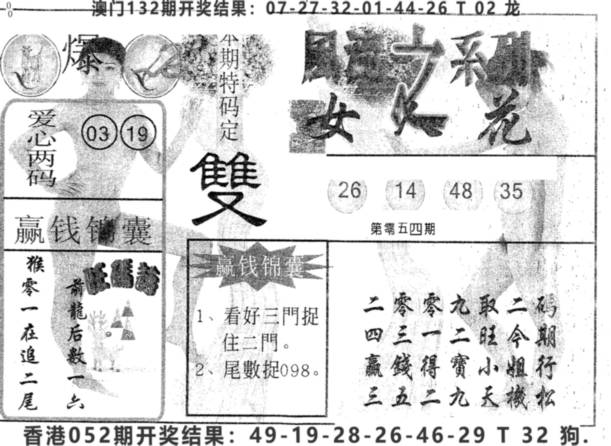 澳门132期开奖结果：07-27-32-01-44-26 T 02 龙
爆
本期特码定
雙
爱心两码
03 19
赢钱锦囊
猴零一在追二尾
前龍后数一六
赢钱锦囊
1、看好三門捉
住二門。
2、尾數捉098。
女人花
26 14 48 35
第零五四期
二零零九取二碼
四三一二旺今期
赢錢得寶小姐行
三五二九天機松
香港052期开奖结果：49-19-28-26-46-29 T 32 狗.